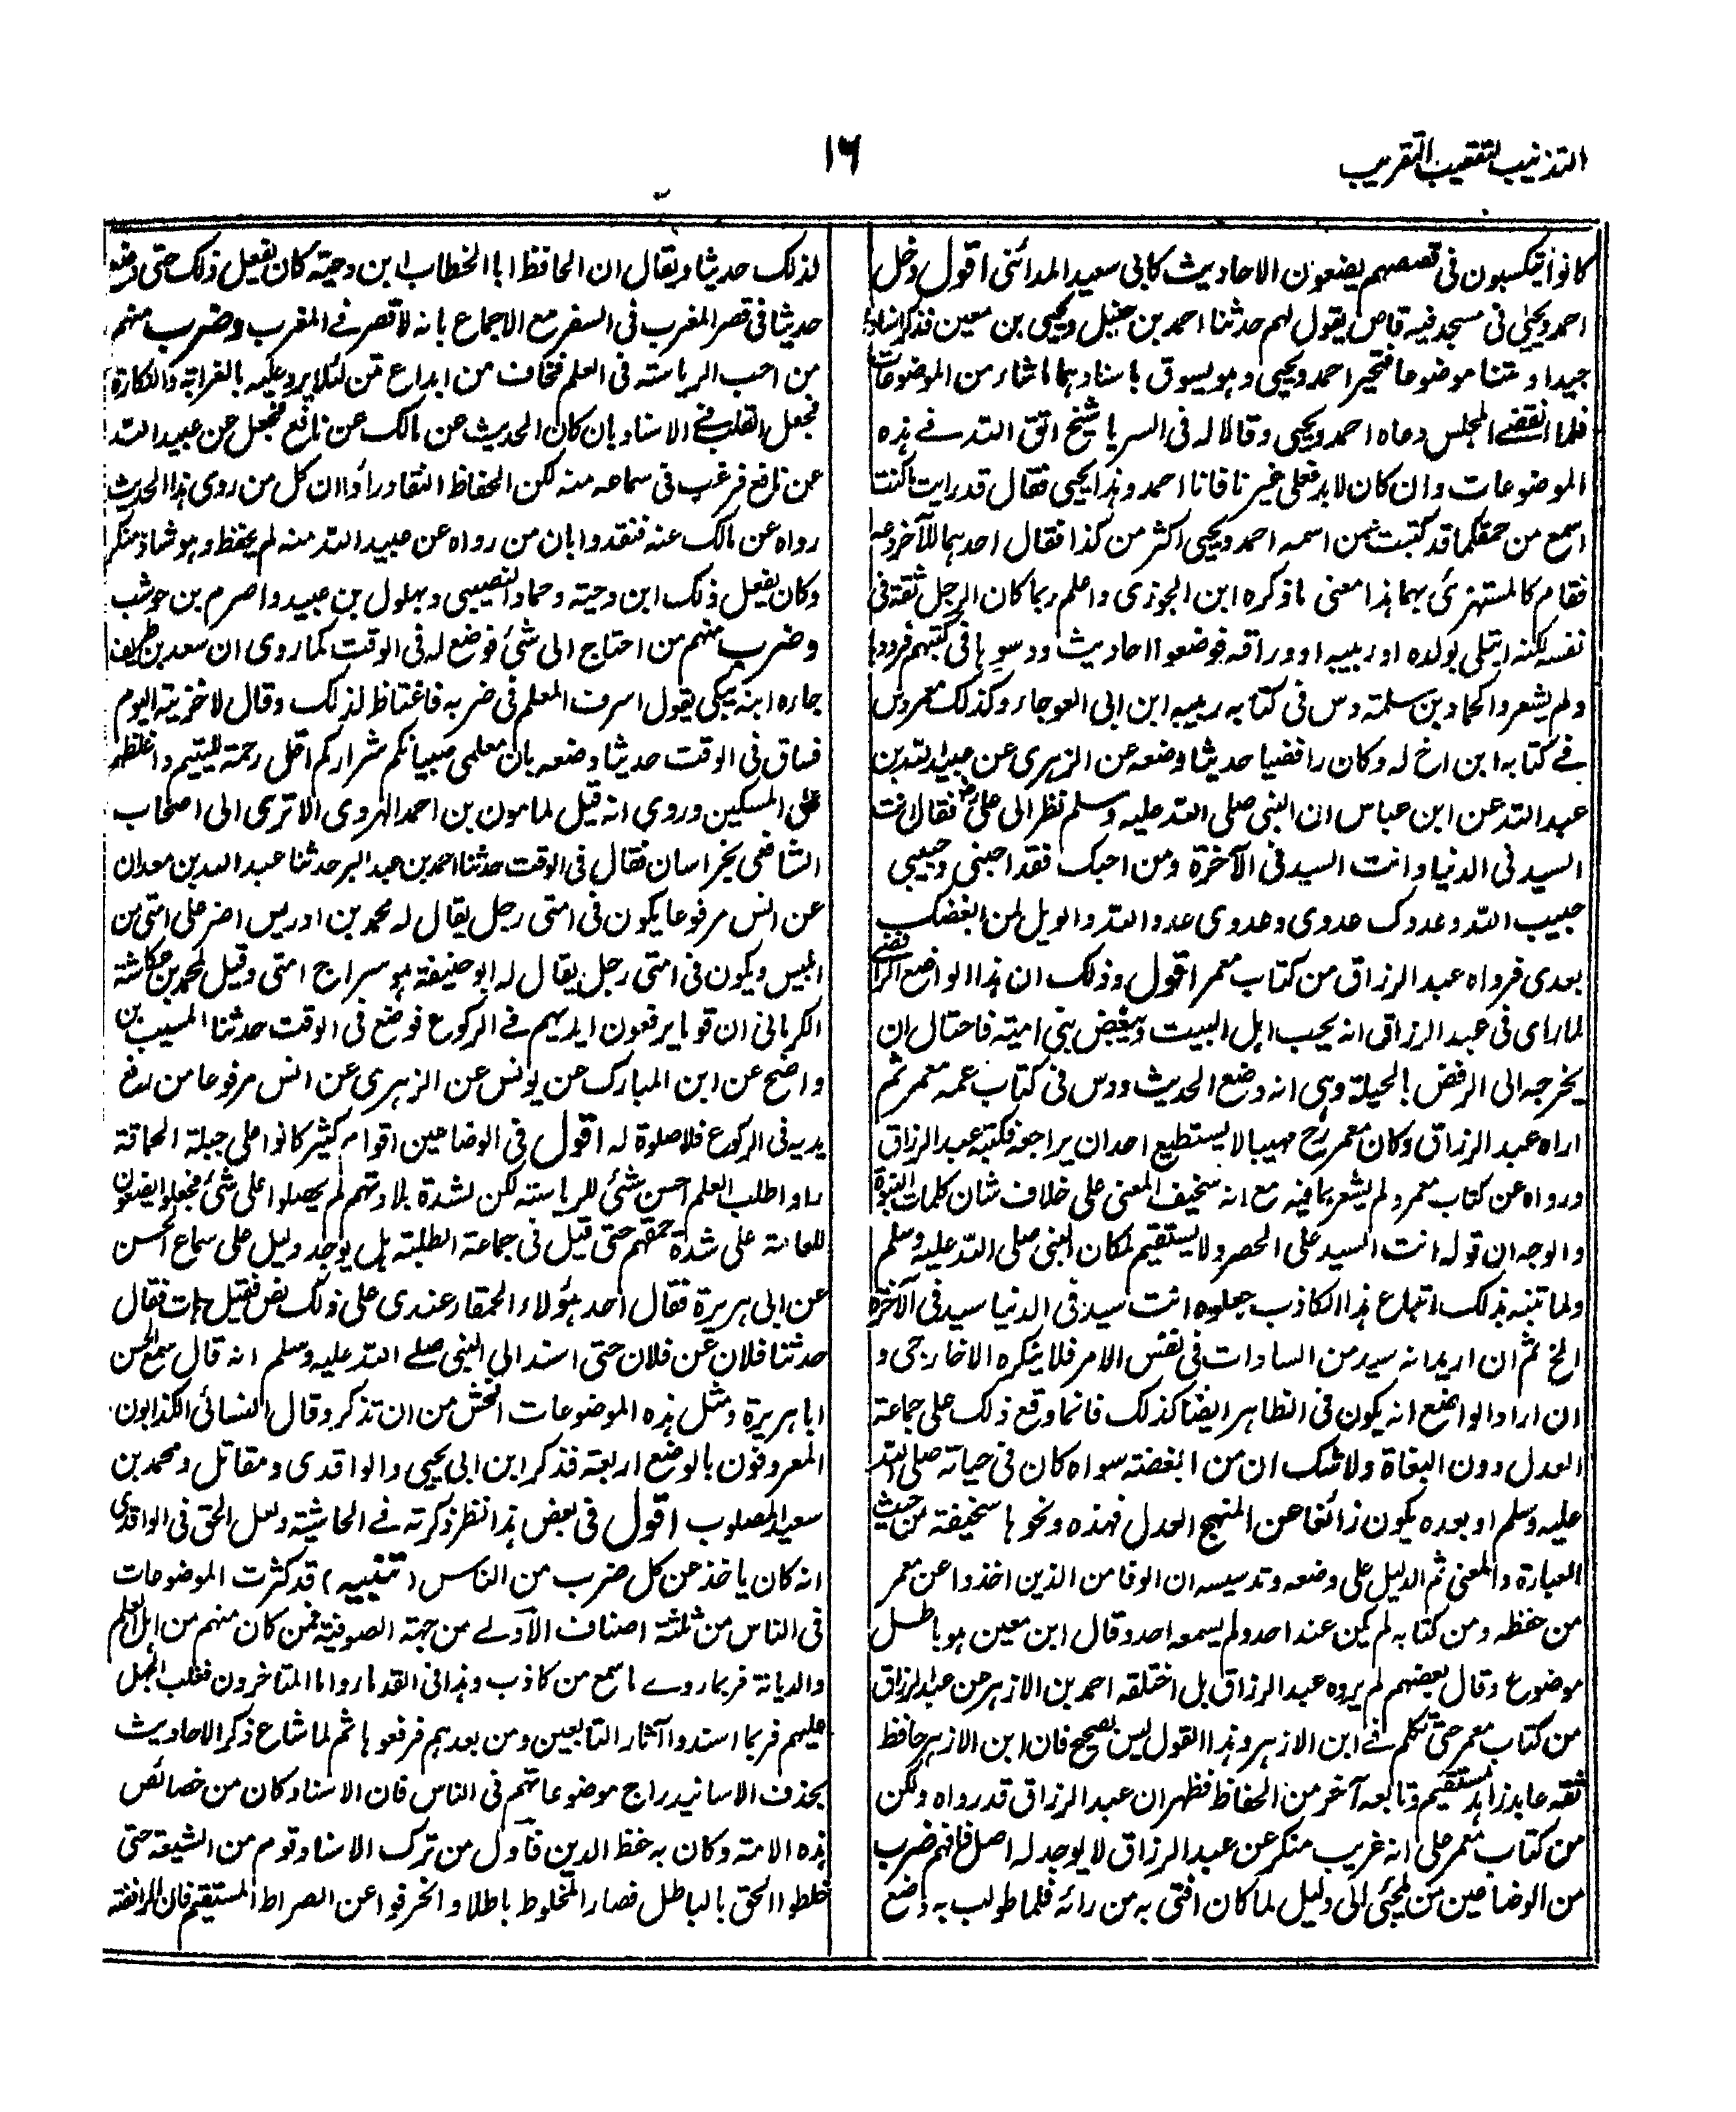 التذنيب لتعقيب التقريب
١٦
كانوا يتكسبون فى قصصهم يضعون الاحاديث كابى سعيد المدائنى اقول دخل
احمد ويحيى فى مسجد فيه قاص يقول لهم حدثنا احمد بن حنبل ويحيى بن معين فذكر اسنادا
جيدا ومتنا موضوعا فتحير احمد ويحيى وهو يسوق باسنادهما ماشاء من الموضوعات
فلما انقضے المجلس دعاه احمد ويحيى وقالا له فى السر يا شيخ اتق الله فے هذه
الموضوعات وان كان لابد فعلى غيرنا فانا احمد وهذا يحيى فقال قد رايت كنت
اسمع من حمقكما قد كتبت عمن اسمه احمد ويحيى اكثر من كذا فقال احدهما للآخر دعه
فقام كالمستهزئ بهما هذا معنى ما ذكره ابن الجوزى واعلم ربما كان الرجل ثقة فى
نفسه لكنه ابتلى بولده او ربيبه او وراقه فوضعوا احاديث ودسوها فى كتبهم فرووها
ولم يشعروا كحماد بن سلمة دس فى كتابه ربيبه ابن ابى العوجاء وكذلك معمر دس
فے كتابه ابن اخ له وكان رافضيا حديثا وضعه عن الزهرى عن عبيد الله بن
عبد الله عن ابن عباس ان النبى صلى الله عليه وسلم نظر الى على رض فقال انت
السيد فى الدنيا وانت السيد فى الآخرة ومن احبك فقد احبنى وحبيبى
حبيب الله وعدوك عدوى وعدوى عدو الله والويل لمن ابغضك
بعدى فرواه عبد الرزاق من كتاب معمر اقول وذلك ان هذا الواضع الرافضے
لما راى فى عبد الرزاق انه يحب اهل البيت ويبغض بنى امية فاحتال ان
يخرجه الى الرفض بالحيلة وهى انه وضع الحديث ودس فى كتاب عمه معمر ثم
اراه عبد الرزاق وكان معمر رح مهيبا لا يستطيع احد ان يراجعه فكتبه عبد الرزاق
ورواه عن كتاب معمر ولم يشعر بما فيه مع انه سخيف المعنى على خلاف شان كلمات النبوة
والوجه ان قوله انت السيد على الحصر ولا يستقيم لمكان النبى صلى الله عليه وسلم
ولما تنبه بذلك اتباع هذا الكاذب جعلوه انت سيد فى الدنيا سيد فى الآخرة
الخ ثم ان اريد انه سيد من السادات فى نفس الامر فلا ينكره الا خارجى و
ان اراد الواضع انه يكون فى الظاهر ايضا كذلك فانما وقع ذلك على جماعة
العدل دون البغاة ولا شك ان من ابغضه سواء كان فى حياته صلى الله
عليه وسلم او بعده يكون زائغا عن المنهج العدل فهذه ونحوها سخيفة من حيث
العبارة والمعنى ثم الدليل على وضعه وتدسيسه ان الوفا من الذين اخذوا عن معمر
من حفظه ومن كتابه لم يكن عند احد ولم يسمعه احد وقال ابن معين هو باطل
موضوع وقال بعضهم لم يروه عبد الرزاق بل اختلقه احمد بن الازهر عن عبد الرزاق
من كتاب معمر حتى تكلم فے ابن الازهر وهذا القول ليس بصحيح فان ابن الازهر حافظ
ثقه عابد زاهد مستقيم وتابعه آخر من الحفاظ فظهر ان عبد الرزاق قد رواه ولكن
من كتاب معمر على انه غريب منكر عن عبد الرزاق لا يوجد له اصل فافهم ضرب
من الوضاعين من يلجئ الى دليل لما كان افتى به من رائه فلما طولب به وضع
لذلك حديثا ويقال ان الحافظ ابا الخطاب ابن دحية كان يفعل ذلك حتى وضع
حديثا فى قصر المغرب فى السفر مع الاجماع بانه لا قصر فے المغرب وضرب منهم
من احب الرياسته فى العلم فخاف من ابداع متن لئلا يرد عليه بالغرابة والنكارة
فجعل القلب فے الاسناد بان كان الحديث عن مالك عن نافع فجعل عن عبيد الله
عن نافع فرغب فى سماعه منه لكن الحفاظ النقاد رأوا ان كل من روى هذا الحديث
رواه عن مالك عنه فنقدوا بان من رواه عن عبيد الله منه لم يحفظ وهو شاذ منكر
وكان يفعل ذلك ابن دحية وحماد النصيبى وبهلول بن عبيد واصرم بن حوشب
وضرب منهم من احتاج الى شئ فوضع له فى الوقت كما روى ان سعد بن طريف
جاءه ابنه يبكى يقول اسرف المعلم فى ضربه فاغتاظ لذلك وقال لاخزينه اليوم
فساق فى الوقت حديثا وضعه بان معلمى صبيانكم شراركم اقل رحمة لليتيم واغلظهم
على المسكين وروى انه قيل لمامون بن احمد الهروى الا ترى الى اصحاب
الشافعى بخراسان فقال فى الوقت حدثنا احمد بن عبد البر حدثنا عبد الله بن معدان
عن انس مرفوعا يكون فى امتى رجل يقال له محمد بن ادريس اضر على امتى من
ابليس ويكون فى امتى رجل يقال له ابو حنيفة هو سراج امتى وقيل لمحمد بن عكاشة
الكرمانى ان قوما يرفعون ايديهم فے الركوع فوضع فى الوقت حدثنا المسيب بن
واضح عن ابن المبارك عن يونس عن الزهرى عن انس مرفوعا من رفع
يديه فى الركوع فلا صلوة له اقول فى الوضاعين اقوام كثير كانوا على جبلة الحماقة
راوا طلب العلم احسن شئى للرياسته لكن لشدة بلادتهم لم يحصلوا على شئ فجعلوا يضعون
للعامة على شدة حمقهم حتى قيل فى جماعة الطلبة هل يوجد دليل على سماع الحسن
عن ابى هريرة فقال احد هؤلاء الحمقاء عندى على ذلك نص فقيل هات فقال
حدثنا فلان عن فلان حتى اسند الى النبى صلے الله عليه وسلم انه قال سمع الحسن
ابا هريرة ومثل هذه الموضوعات افحش من ان تذكر وقال النسائى الكذابون
المعروفون بالوضع اربعة فذكر ابن ابى يحيى والواقدى ومقاتل ومحمد بن
سعيد المصلوب اقول فى بعض هذا نظر ذكرته فے الحاشية ولعل الحق فى الواقدى
انه كان ياخذ عن كل ضرب من الناس (تنبيه) قد كثرت الموضوعات
فى الناس من ثلثة اصناف الآولے من جهة الصوفية فمن كان منهم من اهل العلم
والديانة فربما روے ما سمع من كاذب وهذا فى القدماء واما المتاخرون فغلب الجهل
عليهم فربما اسندوا آثار التابعين ومن بعدهم فرفعوها ثم لما شاع ذكر الاحاديث
بحذف الاسانيد راج موضوعاتهم فى الناس فان الاسناد كان من خصائص
هذه الامة وكان به حفظ الدين فآول من ترك الاسناد قوم من الشيعة حتى
خلطوا الحق بالباطل فصار المخلوط باطلا وانحرفوا عن الصراط المستقيم فان الرافضة